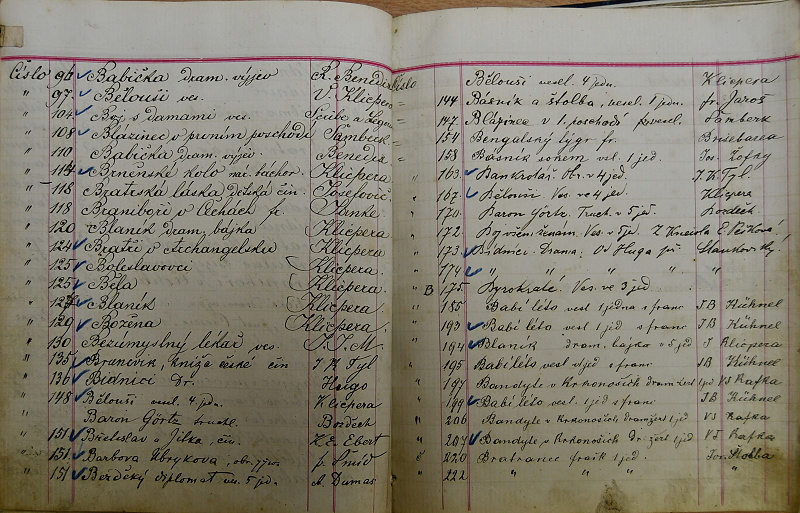 Číslo 96 Babička dram. výjev R. Benedix
" 97 Bělouši ves. V. Klicpera
" 104 Boj s damami ves. Scribe a
" 108 Blázinec v prvním poschodí
" 110 Babička dram. výjev Benedix
" 114 Brněnské kolo nár. báchor. Klicpera
" 116 Bratrská láska čin.
" 118 Braniboři v Čechách
" 120 Blaník dram. bajka Klicpera
" 124 Bratři v Archangelsku Klicpera
" 125 Boleslavovci Klicpera
" 125 Běla Klicpera
" Blaník Klicpera
" 129 Božena Klicpera
" 130 Bezúmyslný lékař ves.
" 135 kníže české čin J. K. Tyl
" 136 Bídníci Dr. Hugo
" 148 Bělouši vesel. 4 jedn. Klicpera
" Baron Görtz truchl. Bozděch
" 151 Břetislav a Jitka, čin. Ebert
" 151 Barbora Ubryková, obr. Šmíd
" 151 diplomat ves. 5 jed. A. Dumas
Číslo Bělouši vesel. 4 jedn. Klicpera
" 144 Básník a štolba, vesel. 1 jedn. fr. Jaroš
" 147 Blázinec v 1. poschodí Šamberk
" 154 Bengálský tygr fr.
" 158 Básník sokem vsl. 1 jed.
" 163 Bankrotář. Obr. v 4 jed. J. K. Tyl.
" 167. Bělouši. Ves. ve 4 jed. Klicpera
" 170. Baron Görtz. Truch. v 5 jed. Bozděch.
" 172. Boj všem ženám. Ves. v 5 E. Pešková
" 173. Bídníci. Drama. Od Huga Stankovský
" 174 " " " "
B 175 Byrokrati. Ves. ve 3 jed
" 185 Babí léto vesl 1 jedna s franc JB Kühnel
" 193 Babí léto vesl 1 jed s franc JB Kühnel
" 194 Blaník dram. bajka v 5 jed J Klicpera
" 195 Babí léto vesl 1 jed s franc JB Kühnel
" 197 Bandyte v Krkonoších dram žert 1 jed VJ Kafka
" 199 Babí léto vesl. 1 jed s franc JB Kühnel
" 206 Bandyte v Krkonoších dram žert 1 jed VJ Kafka
" 207 Bandyte v Krkonoších Dr. žert 1 jed VJ Kafka
č 220 Bratranec frašk 1 jed. Jos. Štolba
" 222 " " " "